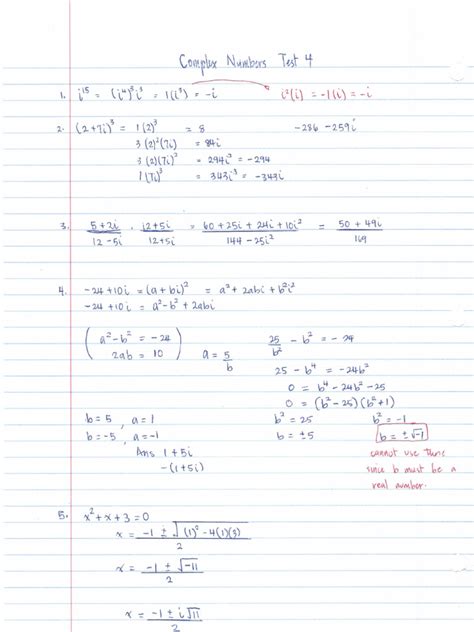 Complex Numbers Test 4
1. i¹⁵ = (i⁴)³i³ = 1(i³) = -i i²(i) = -1(i) = -i
2. (2+7i)³ = 1(2)³ = 8 -286 -259i
3(2)²(7i) = 84i
3(2)(7i)² = 294i² = -294
1(7i)³ = 343i³ = -343i
3. (5+2i)/(12-5i) · (12+5i)/(12+5i) = (60+25i+24i+10i²)/(144-25i²) = (50+49i)/169
4. -24+10i = (a+bi)² = a²+2abi+b²i²
-24+10i = a²-b²+2abi
(a²-b² = -24 25/b² - b² = -24
2ab = 10) a = 5/b
25 - b⁴ = -24b²
0 = b⁴-24b²-25
0 = (b²-25)(b²+1)
b=5, a=1 b²=25 b²=-1
b=-5, a=-1 b=±5 b=±√-1
Ans 1+5i cannot use these
-(1+5i) since b must be a
real number.
5. x²+x+3=0
x = (-1 ± √((1)²-4(1)(3)))/2
x = (-1 ± √-11)/2
x = (-1 ± i√11)/2